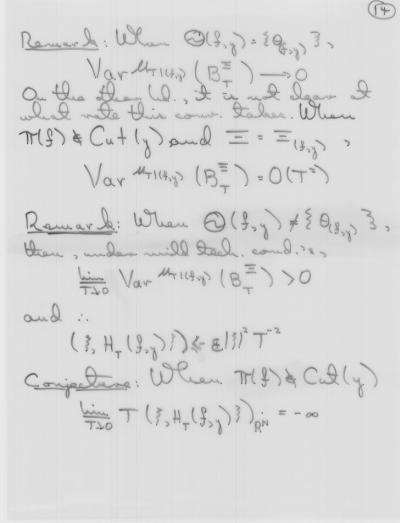 14
Remark: When Θ(f,y) = {θ_(f,y)},
Var^{μ_T|(f,y)} (B_T^Ξ) → 0
On the other hd., it is not clear at
what rate this conv. takes. When
π(f) ⋔ Cut(y) and Ξ = Ξ_(f,y),
Var^{μ_T|(f,y)} (B_T^Ξ) = O(T²)
Remark: When Θ(f,y) ≠ {θ_(f,y)},
then, under mild tech. cond.'s,
lim_{T→0} Var^{μ_T|(f,y)} (B_T^Ξ) > 0
and ∴
(ξ, H_T(f,y)ξ) ≤ -ε|ξ|² T^{-2}
Conjecture: When π(f) ⋔ Cut(y)
lim_{T→0} T (ξ, H_T(f,y)ξ)_{R^N} = -∞